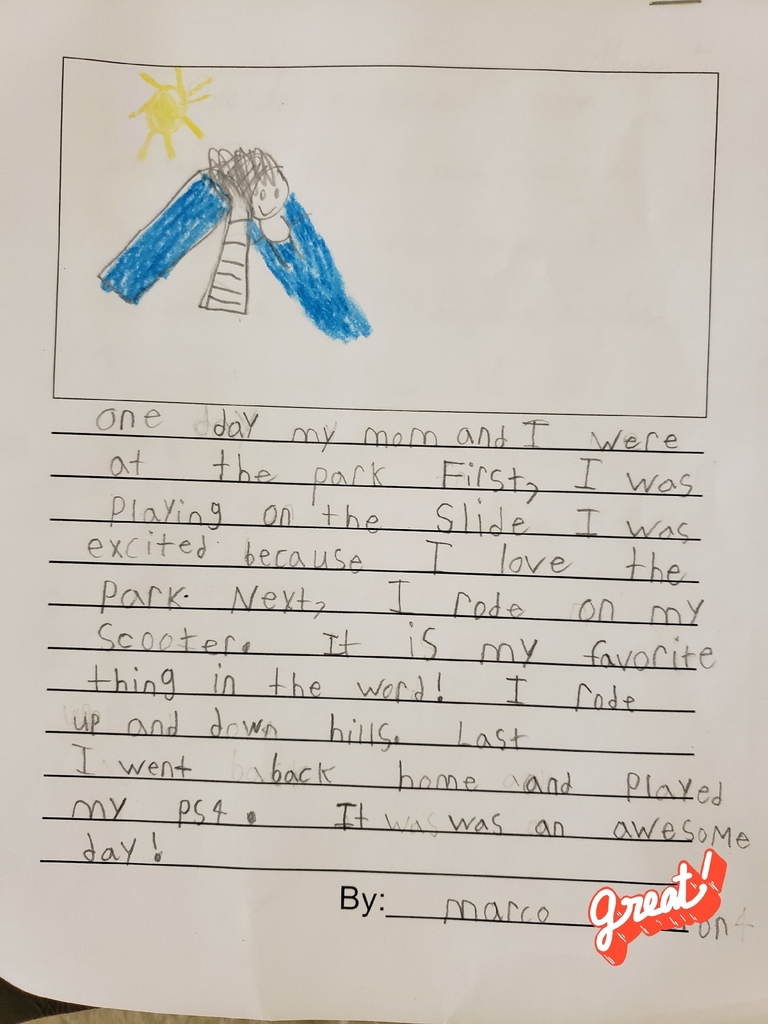 one day my mom and I were
at the park First, I was
playing on the Slide I was
excited because I love the
park. Next, I rode on my
Scooter. It is my favorite
thing in the word! I rode
up and down hills. Last
I went back home and played
my ps4. It was was an awesome
day!
By: marco
great!